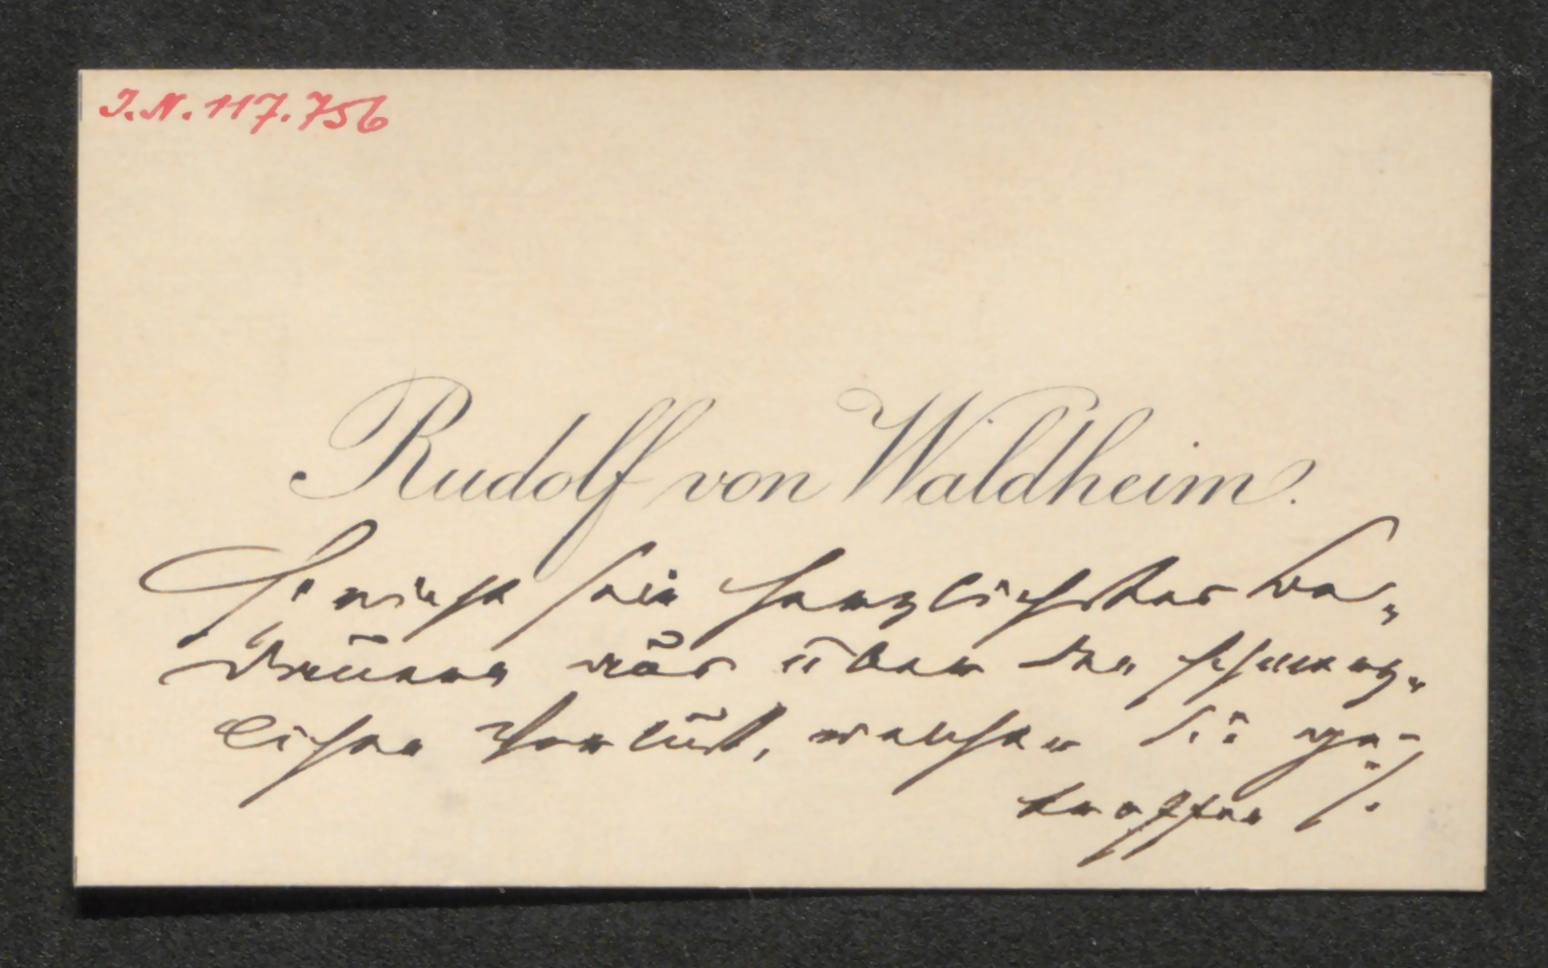 J.N. 117.756
Rudolf von Waldheim.
spricht sein herzlichstes Be-
dauern aus über den schmerz-
lichen Verlust, welcher Sie ge-
troffen /.